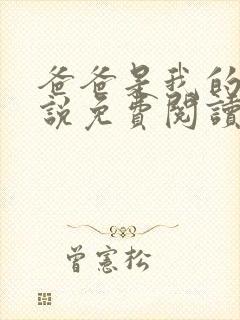 爸爸是我的
說免費閱讀
曾憲松